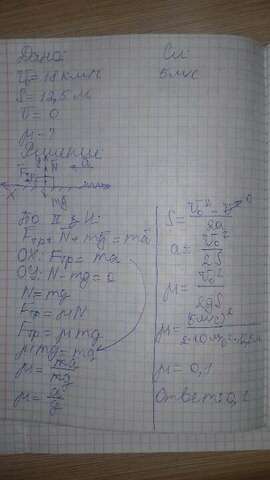 Дано:
V₀ = 18 км/ч
S = 12,5 м
V = 0
μ - ?
Си
5 м/с
Решение
N
Fтр
a
mg
X
По II з. Н:
Fтр + N + mg = ma
OX: Fтр = ma
OY: N - mg = 0
N = mg
Fтр = μN
Fтр = μmg
μmg = ma
μ = ma/mg
μ = a/g
S = V₀² - V²/2a
0
a = V₀²/2S
μ = V₀²/2gS
μ = (5м/с)²/2·10 м/с²·12,5м
μ = 0,1
Ответ: 0,1